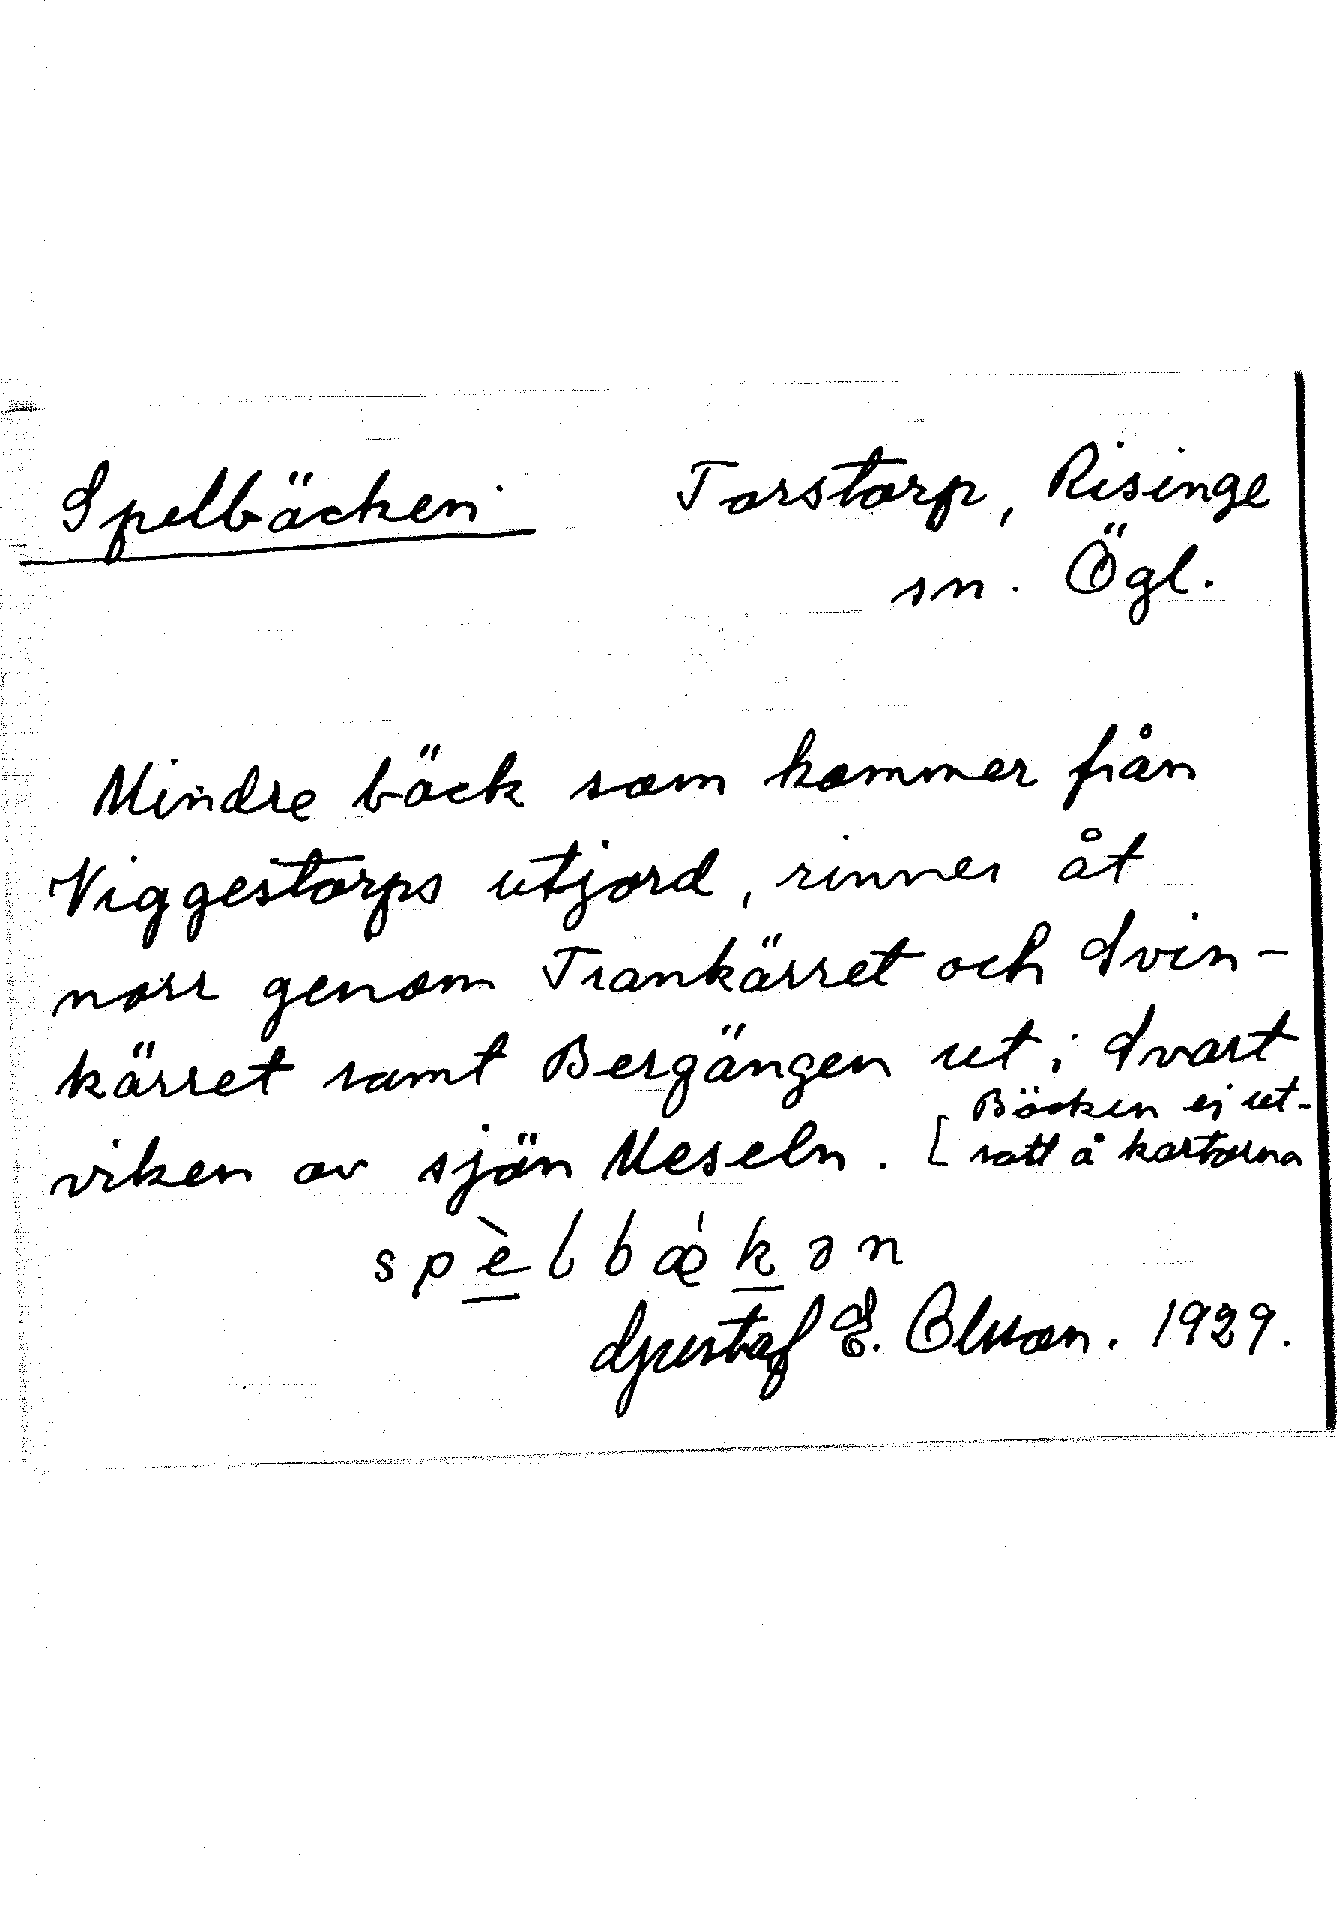 Spelbäcken Torstorp, Risinge
sn. Ögl.
Mindre bäck som kommer från
Viggestorps utjord, rinner åt
norr genom Trankärret och Svin-
kärret samt Bergängen ut i Svart
viken av sjön Meseln. [ Bäcken ej ut-
satt å kartorna
spèlbækən
Gustaf E. Olsson. 1929.